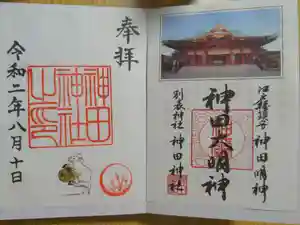 江戸総鎮守 神田明神
神田大明神
別表神社 神田神社
奉拝
神田
神社
之印
令和二年八月十日